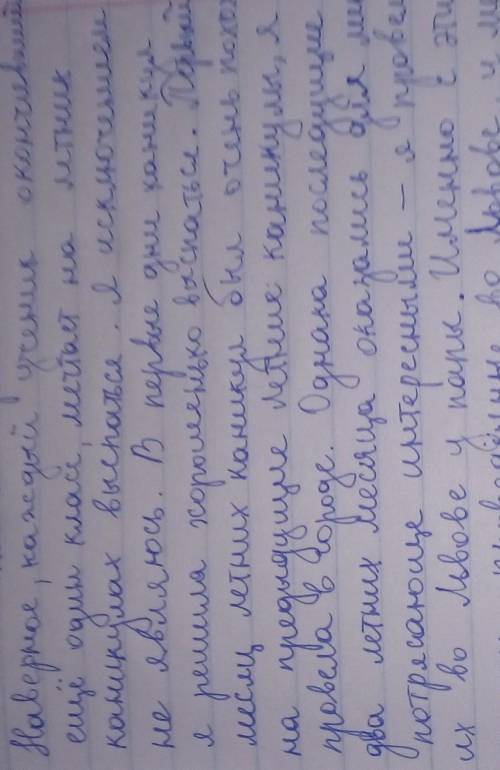 Наверное, каждый ученик окончивший
ещё один класс, мечтает на летних
каникулах выспаться. Я исключением
не являюсь. В первые дни каникул
я решила хорошенько выспаться. Первый
месяц летних каникул был очень похо
на предыдущие летние каникулы, я
провела в городе. Однако последующие
два летних месяца оказались для ме
потрясающе интересными – я провел
их во Львове у пары. Именно с эти
во Львове